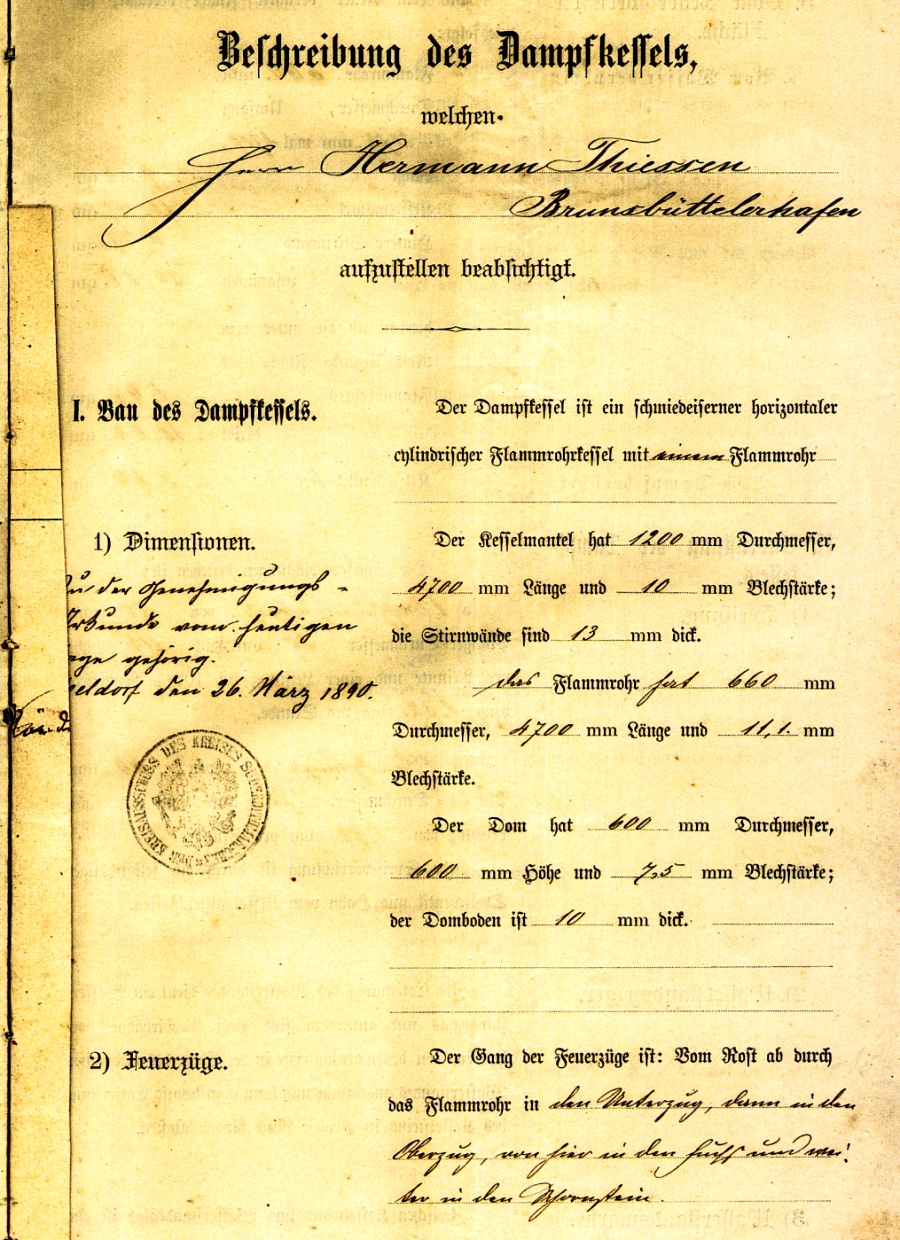 Beschreibung des Dampfkessels,
welchen
Herr Hermann Thiessen
Brunsbüttelerhafen
aufzustellen beabsichtigt.
I. Bau des Dampfkessels.
Der Dampfkessel ist ein schmiedeiserner horizontaler
cylindrischer Flammrohrkessel mit einem Flammrohr
1) Dimensionen.
Der Kesselmantel hat 1200 mm Durchmesser,
4700 mm Länge und 10 mm Blechstärke;
die Stirnwände sind 13 mm dick.
das Flammrohr hat 660 mm
Durchmesser, 4700 mm Länge und 11,1 mm
Blechstärke.
Der Dom hat 600 mm Durchmesser,
600 mm Höhe und 7,5 mm Blechstärke;
der Domboden ist 10 mm dick.
zu der Genehmigungs-
Urkunde vom heutigen
age gehörig.
eldorf den 26. März 1890.
DER KREISAUSSCHUSS DES KREISES SÜDERDITHMARSCHEN
2) Feuerzüge.
Der Gang der Feuerzüge ist: Vom Rost ab durch
das Flammrohr in den Unterzug, dann in den
Oberzug, von hier in den Fuchs und wei-
ter in den Schornstein.